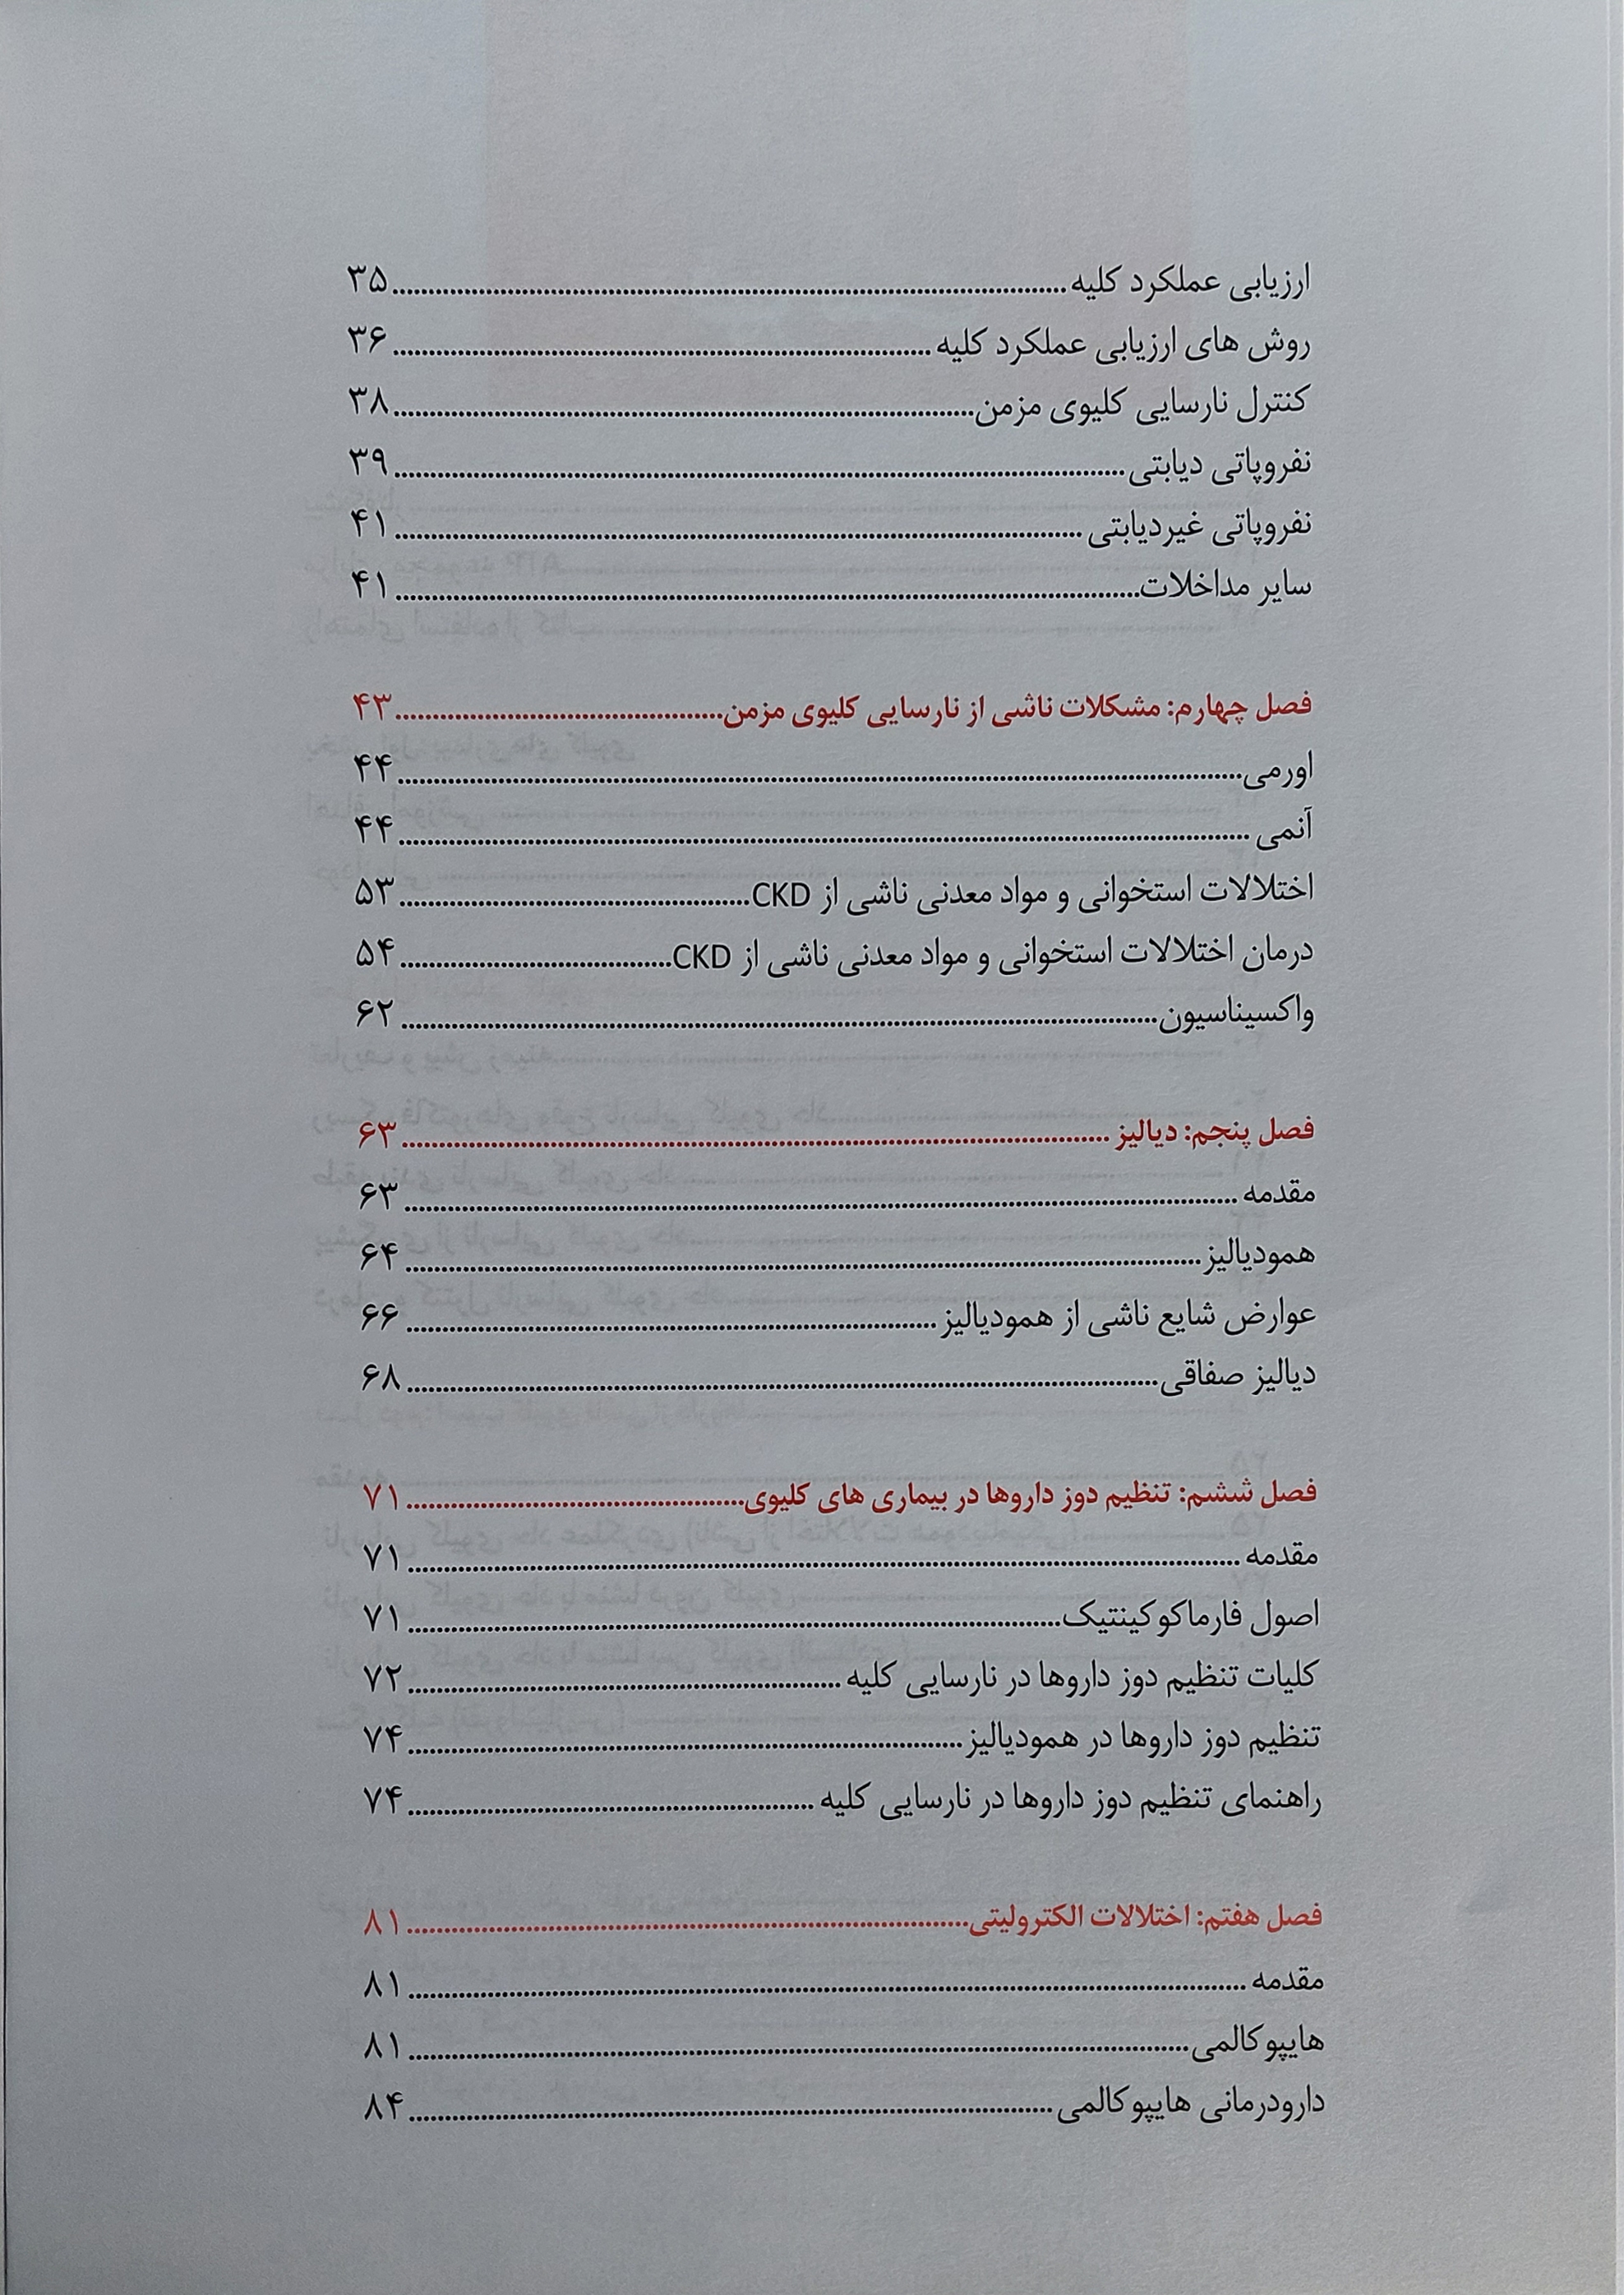 ارزیابی عملکرد کلیه ........ ۳۵
روش های ارزیابی عملکرد کلیه ........ ۳۶
کنترل نارسایی کلیوی مزمن ........ ۳۸
نفروپاتی دیابتی ........ ۳۹
نفروپاتی غیردیابتی ........ ۴۱
سایر مداخلات ........ ۴۱
فصل چهارم: مشکلات ناشی از نارسایی کلیوی مزمن ........ ۴۳
اورمی ........ ۴۴
آنمی ........ ۴۴
اختلالات استخوانی و مواد معدنی ناشی از CKD ........ ۵۳
درمان اختلالات استخوانی و مواد معدنی ناشی از CKD ........ ۵۴
واکسیناسیون ........ ۶۲
فصل پنجم: دیالیز ........ ۶۳
مقدمه ........ ۶۳
همودیالیز ........ ۶۴
عوارض شایع ناشی از همودیالیز ........ ۶۶
دیالیز صفاقی ........ ۶۸
فصل ششم: تنظیم دوز داروها در بیماری های کلیوی ........ ۷۱
مقدمه ........ ۷۱
اصول فارماکوکینتیک ........ ۷۱
کلیات تنظیم دوز داروها در نارسایی کلیه ........ ۷۲
تنظیم دوز داروها در همودیالیز ........ ۷۴
راهنمای تنظیم دوز داروها در نارسایی کلیه ........ ۷۴
فصل هفتم: اختلالات الکترولیتی ........ ۸۱
مقدمه ........ ۸۱
هایپوکالمی ........ ۸۱
دارودرمانی هایپوکالمی ........ ۸۴